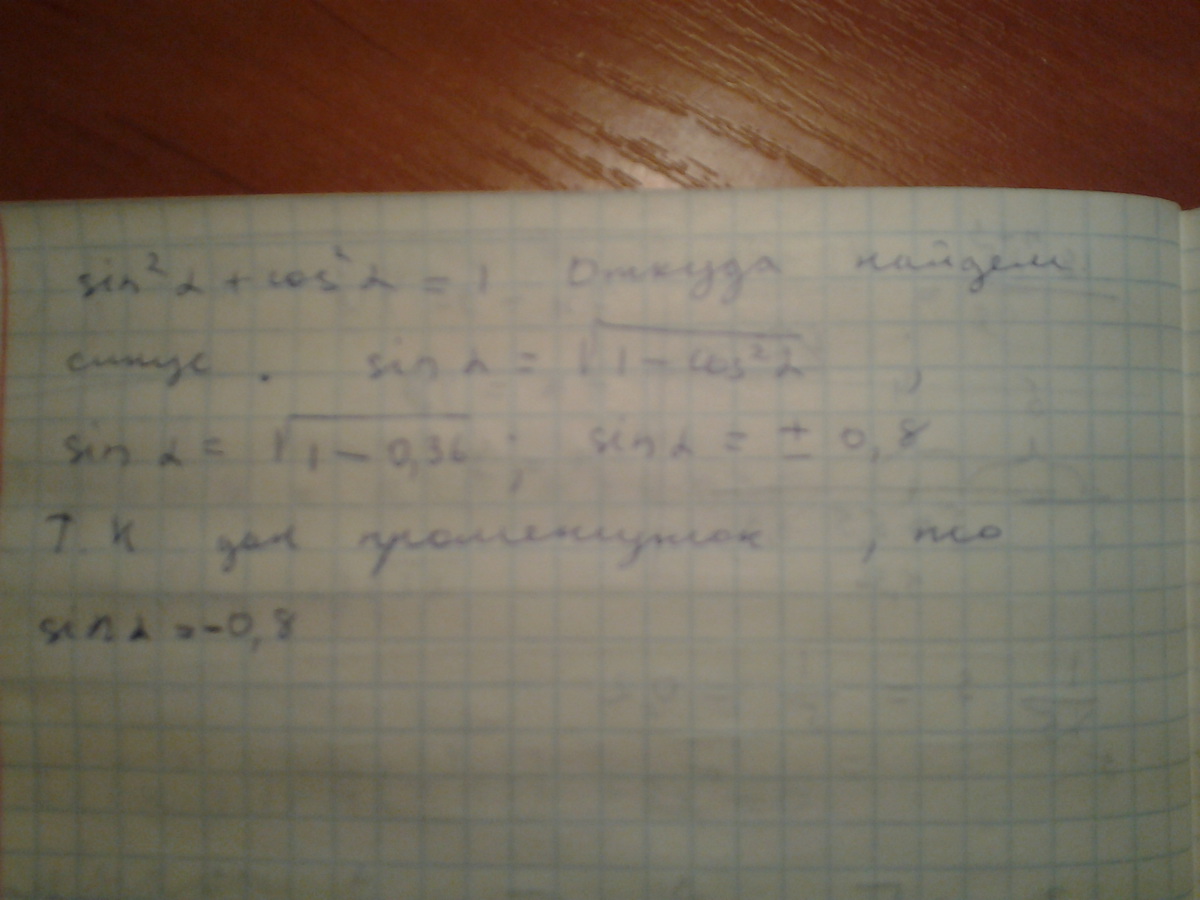 sin²α + cos²α = 1 Откуда найдем
синус . sin α = √(1 - cos²α) ,
sin α = √(1 - 0,36) ; sin α = ± 0,8
Т.К дан промежуток , то
sin α = -0,8